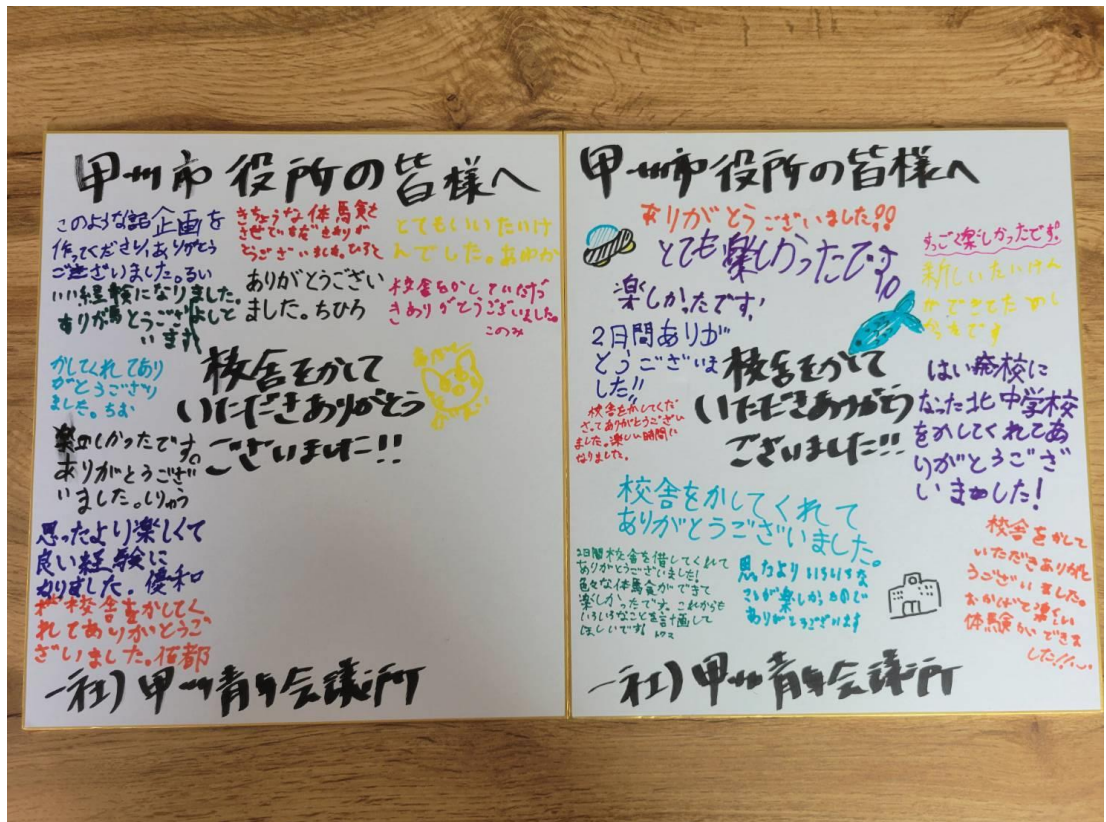 甲州市役所の皆様へ
このような企画を
作ってくださり、ありがとう
ございました。るい
いい経験になりました。
ありがとうございまして
います
きちょうな体験を
させていただきありが
とうございました。ひろと
とてもいいたいけ
んでした。あやか
ありがとうござい
ました。ちひろ
校舎をかしていただ
きありがとうございました。
このみ
かしてくれてあり
がとうござり
ました。ちむ
校舎をかして
いただきありがとう
ございました!!
楽しかったです。
ありがとうござ
いました。しりゅう
思ったより楽しくて
良い経験に
なりました。優和
校舎をかしてく
れてありがとうご
ざいました。佰都
一社)甲州青年会議所
甲州市役所の皆様へ
ありがとうございました!!
とても楽しかったです。
楽しかったです!
2日間ありが
とうございま
した!!
すっごく楽しかったです!
新しいたいけん
ができてたのし
です
校舎をかしてくだ
さってありがとうござい
ました。楽しい時間に
なりました。
校舎をかして
いただきありがとう
ございました!!
はい廃校に
なった北中学校
をかしてくれてあ
りがとうござ
いました!
校舎をかしてくれて
ありがとうございました。
2日間校舎を借してくれて
ありがとうございました!
色々な体験ができて
楽しかったです。これからも
いろいろなことを計画して
ほしいです!
思たよりいろいろな
ことが楽しかったので
ありがとうございます
校舎をかして
いただきありがと
うございました。
おかげで楽しい
体験ができま
した!!
一社)甲州青年会議所